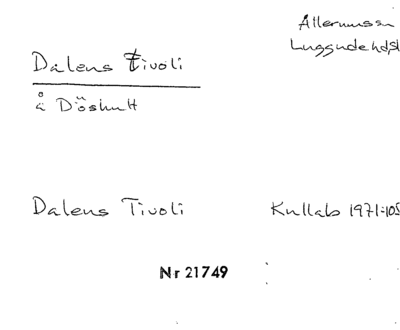 Allerum sn
Luggude hd, sk
Dalens Tivoli
å Döshult
Dalens Tivoli Kullab 1971:105
Nr 21749